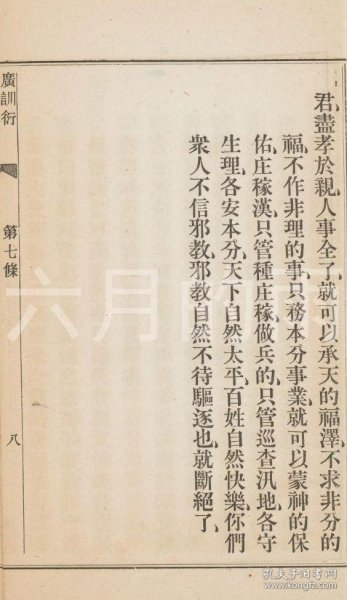 君、盡孝於親、人事全了、就可以承天的福澤、不求非分的
福、不作非理的事、只務本分事業、就可以蒙神的保
佑、庄稼漢、只管種庄稼、做兵的、只管巡查汛地、各守
生理、各安本分、天下自然太平、百姓自然快樂、你們
衆人不信邪教、邪教自然不待驅逐也、就斷絕了、
廣訓衍
第七條
八
孔夫子旧书网